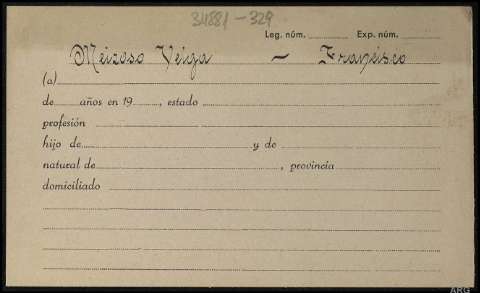 34881-329
Leg. núm. Exp. núm.
Meizoso Veiga — Francisco
(a)
de años en 19 , estado
profesión
hijo de y de
natural de , provincia
domiciliado
ARG